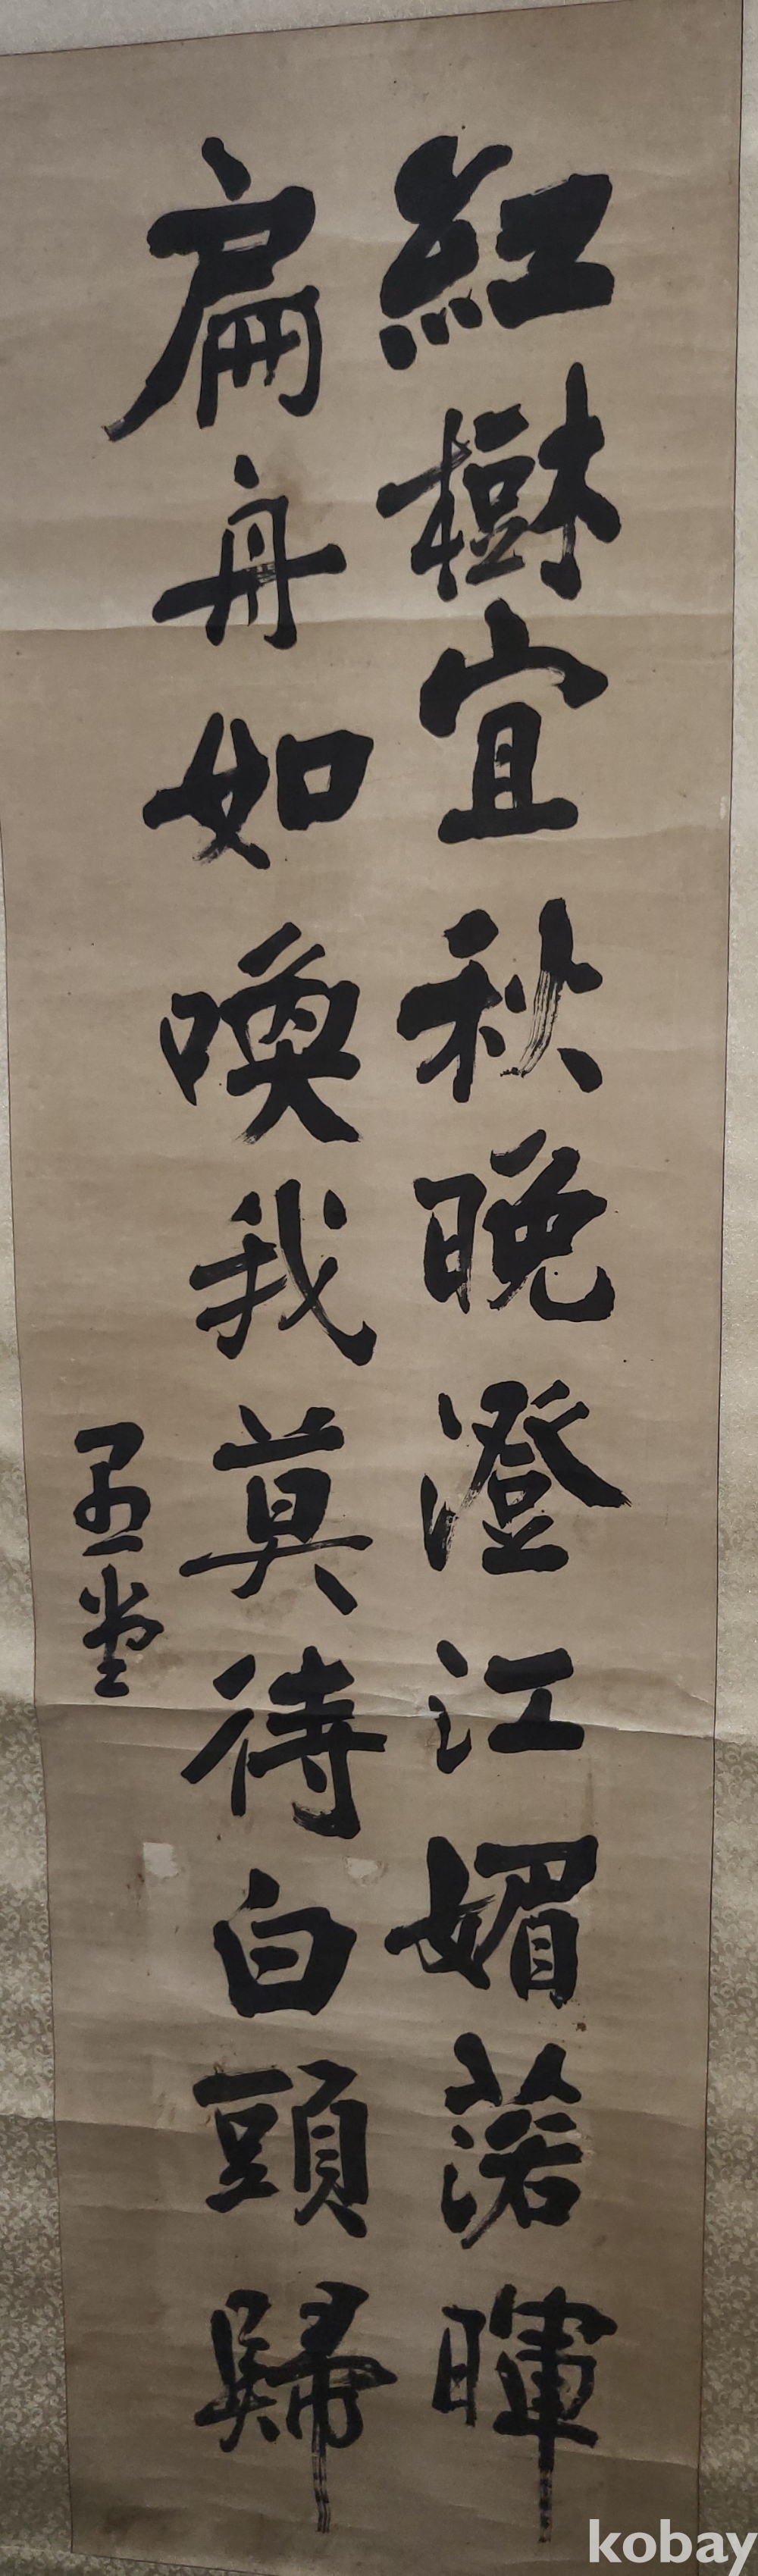 紅樹宜秋晚澄江媚落暉
扁舟如喚我莫待白頭歸
堂
kobay